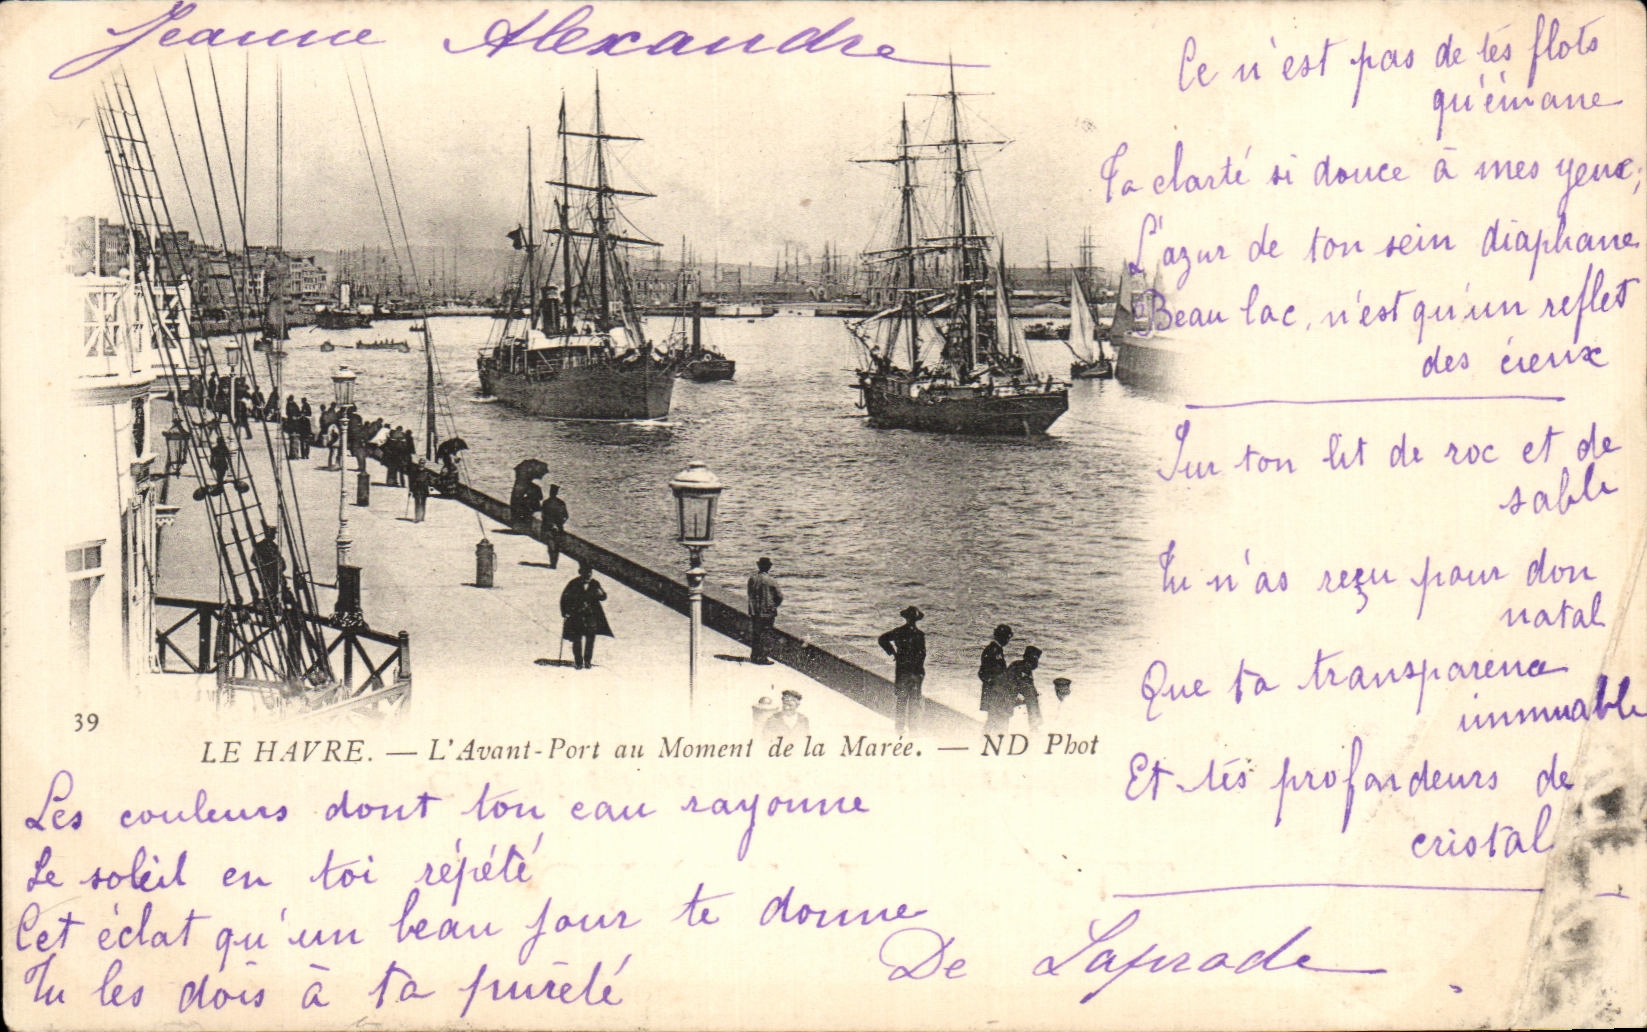 Jeanne Alexandre
Ce n'est pas de tés flots
qu'émane
Ta clarté si douce à mes yeux;
L'azur de ton sein diaphane
Beau lac, n'est qu'un reflet
des cieux
Sur ton lit de roc et de
sable
Tu n'as reçu pour don
natal
Que ta transparence
immuable
Et tés profondeurs de
cristal
39
LE HAVRE. — L'Avant-Port au Moment de la Marée. — ND Phot
Les couleurs dont ton eau rayonne
Le soleil en toi répété
Cet éclat qu'un beau jour te donne
Tu les dois à ta pureté
De Laprade